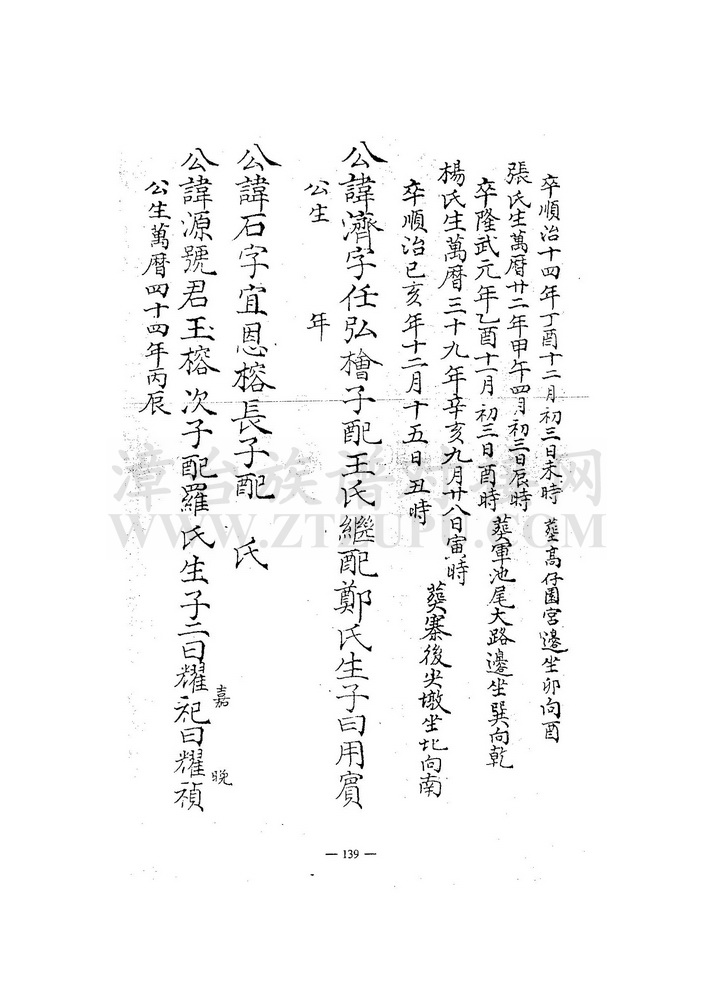 卒順治十四年丁酉十二月初三日未時 塟高仔園宮邊坐卯向酉
張氏生萬曆廿二年甲午四月初三日辰時
卒隆武元年乙酉十一月初三日酉時 葬軍池尾大路邊坐巽向乾
楊氏生萬曆三十九年辛亥九月廿八日寅時
卒順治己亥年十二月十五日丑時 葬寨後尖墩坐北向南
公諱濟字任弘檜子配王氏繼配鄭氏生子曰用賓
公生 年
公諱石字宜恩榕長子配 氏
公諱源號君玉榕次子配羅氏生子二曰耀祀曰耀禎
嘉 晚
公生萬曆四十四年丙辰
漳台族谱对接网
WWW.ZTZUPU.COM
— 139 —